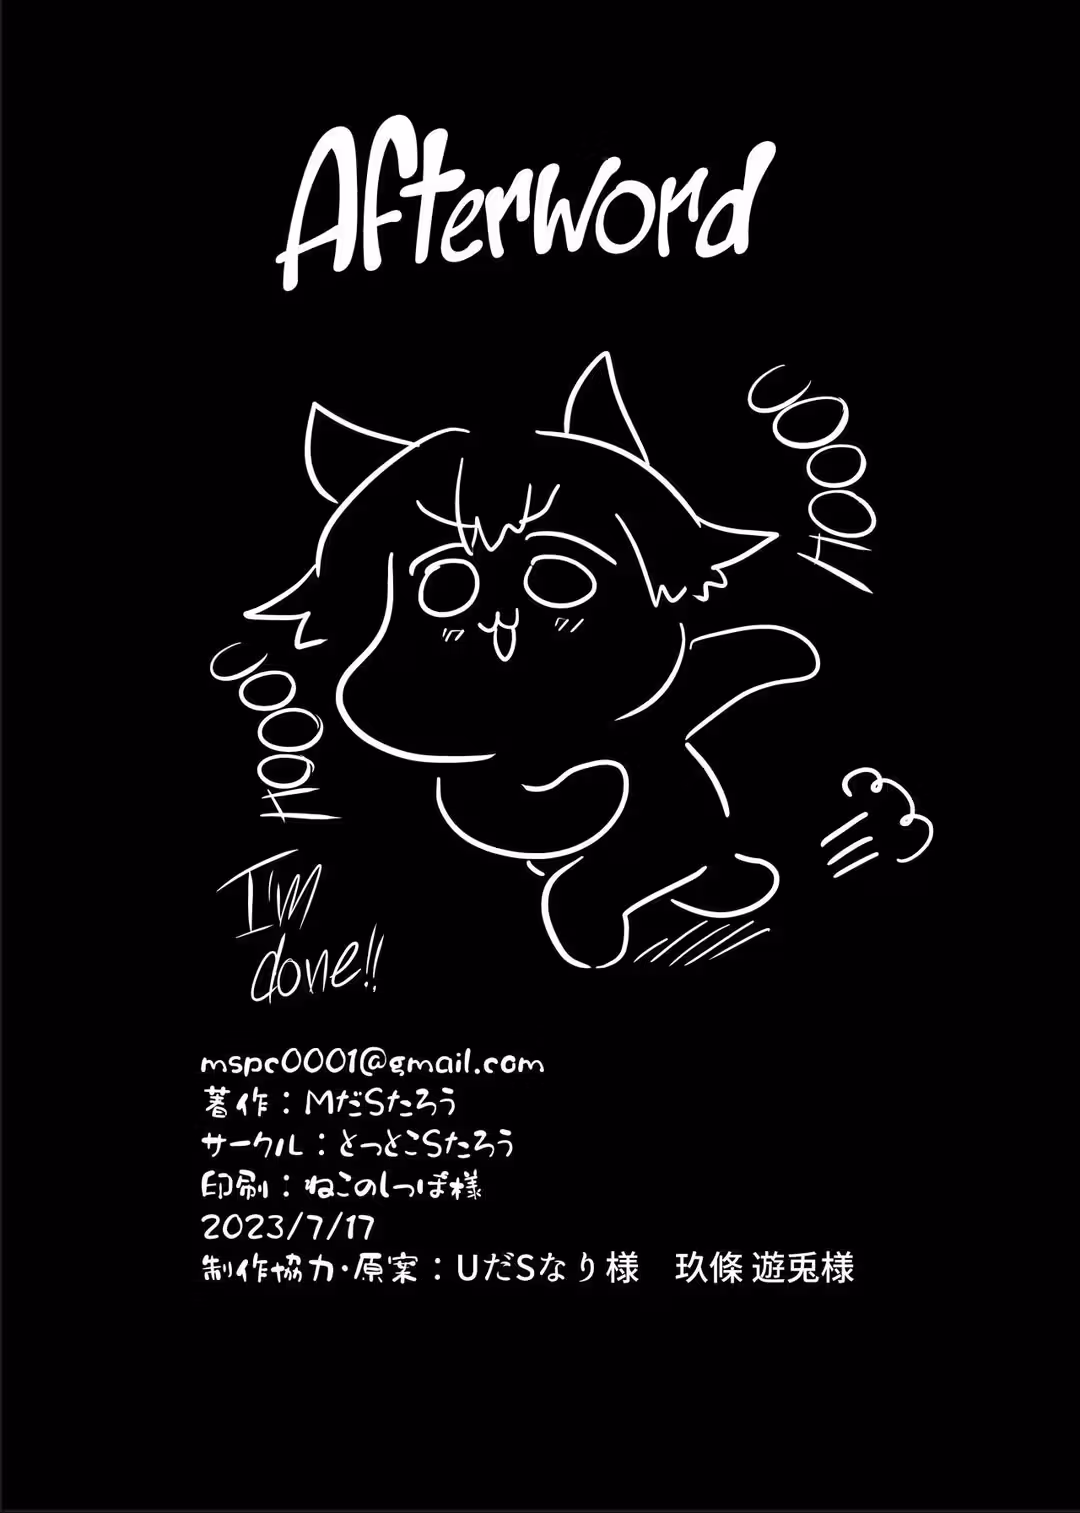 Afterword
HOOO
HOOO
I'm
done!!
mspc0001@gmail.com
著作：MだSたろう
サークル：とっとこSたろう
印刷：ねこのしっぽ様
2023/7/17
制作協力・原案：UだSなり様　玖條 遊兎様